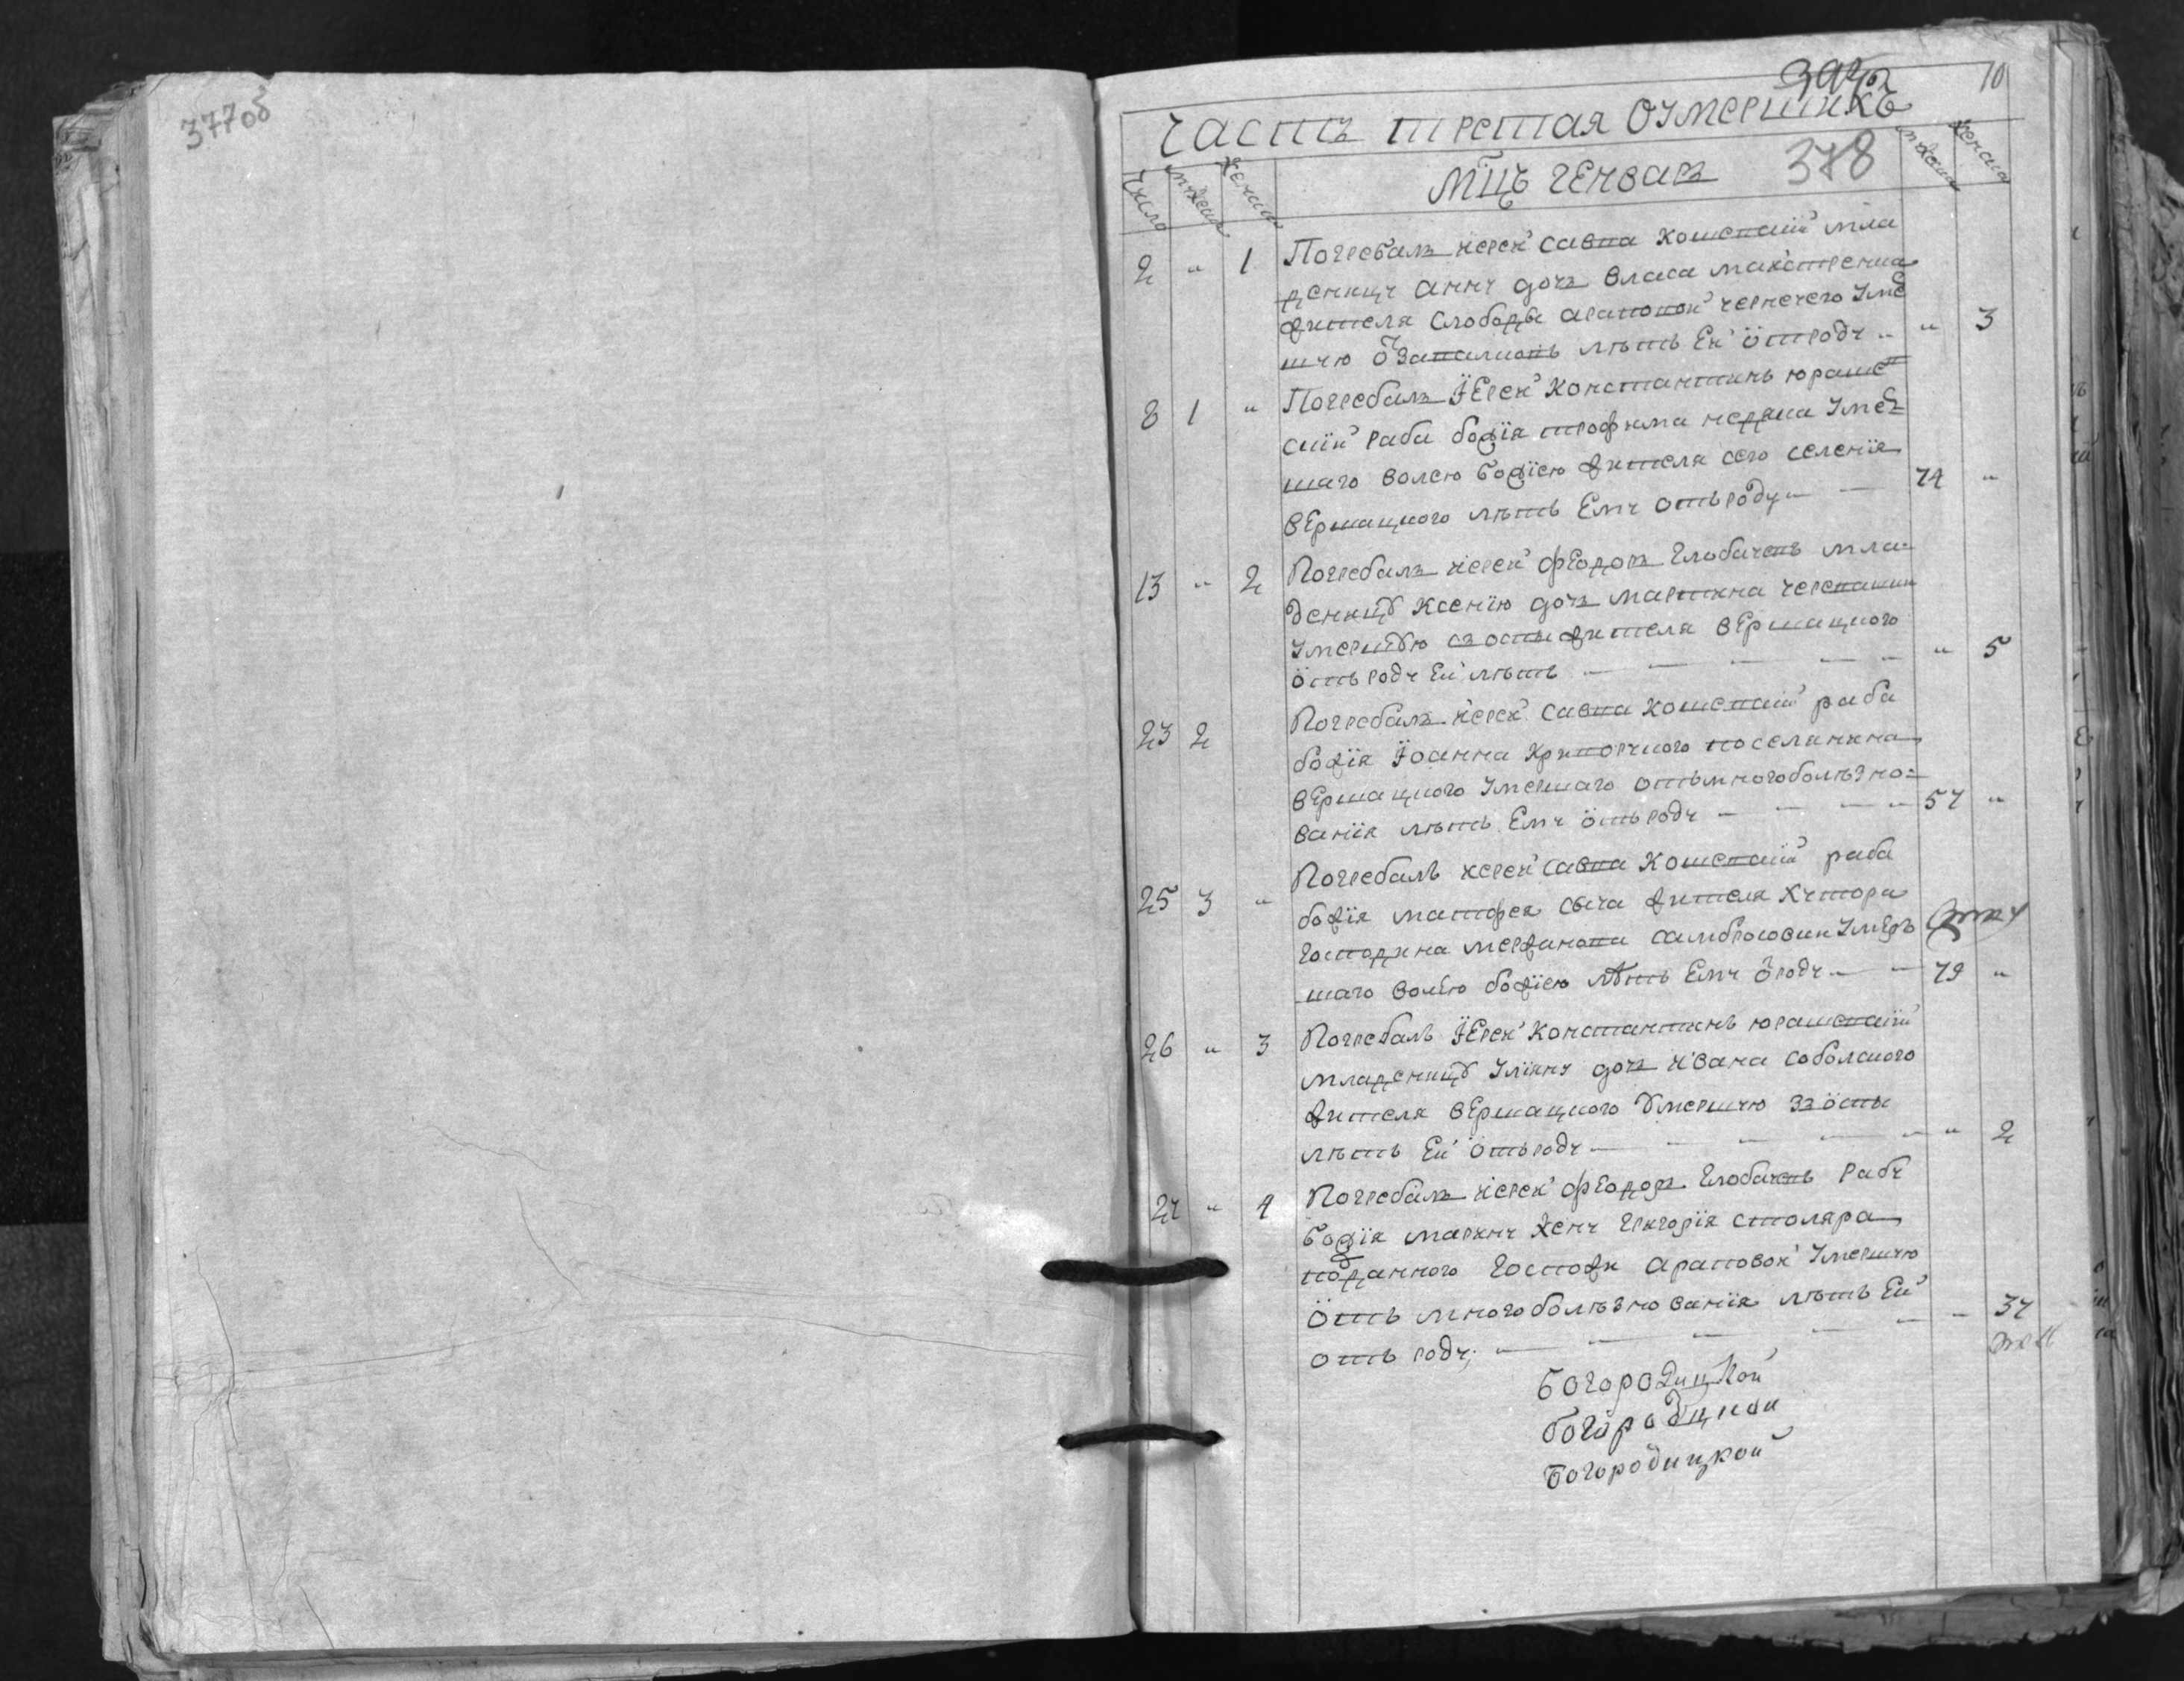 377об
10
Часть третая Оумершихъ
378
Мц҃ъ Генваръ
Число
мужеска
женска
2 " 1 Погребалъ иерей савва кошевский мла
деницу анну дочь власа
жителя слободы араповой чернечего Уме
шую лѣтъ Ей ѿтроду " 3
8 1 " Погребалъ Їерей Константинъ юраше
ский раба божія трофима Умер
шаго волею божіею жителя сего селенія
вершацкого лѣтъ Ему отъроду 74 "
13 " 2 Погребалъ иерей феодоръ Глобачевъ мла=
деницꙋ Ксенію дочь мартина
Умершꙋю зъ оспы жителя вершацкого
отъ роду Ей лѣтъ " 5
23 2 Погребалъ иерей савва кошевский раба
божія Їоанна поселянина
вершацкого Умершаго отъ многоболѣзно=
ванія лѣтъ Ему отъроду 57 "
25 3 " Погребалъ иерей савва Кошевский раба
божія матфея сыча жителя хутора
Господина Умер
шаго волею божіею лѣтъ Ему ѿроду 79 "
26 " 3 Погребалъ Їерей Константинъ юрашевский
младеницꙋ Уліяну дочь ивана соболского
жителя вершацкого Умершую зъ оспы
лѣтъ Ей отъроду " 2
27 " 4 Погребалъ иерей феодоръ Глобачевъ рабу
божія марину жену григорія столяра
подданного Госпожи араповой Умершую
отъ многоболѣзнованія лѣтъ Ей
отъ роду; 37
Богородицкой
богородицкой
Богородицкой